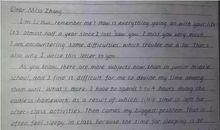 Dear Miss Zhang,
I'm Li Hua, remember me? How is everything going on with you?
It's almost half a year since I last saw you. I miss you very much.
I am encountering some difficulties, which trouble me a lot. That's
also why I write this letter to you.
As you know, there are more subjects now than in junior middle
school, and I find it difficult for me to devide my time among
them well. What's more, I have to spend 3 or 4 hours doing the
endless homework, as a result of which little time is left for
after-class activities. Then comes my biggest problem. That is I
often feel sleepy in class because the time for sleeping is